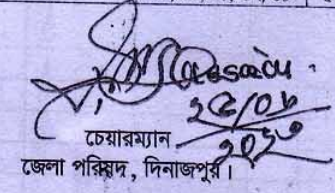 ২৫/০৬
২০১৩
চেয়ারম্যান
জেলা পরিষদ, দিনাজপুর।